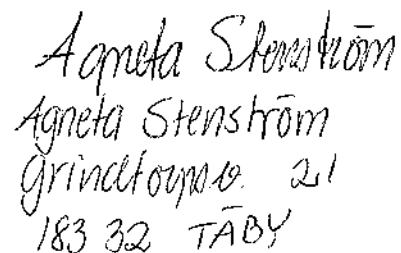 Agneta Stenström
Agneta Stenström
Grindtorpsv. 21
183 32 TÄBY